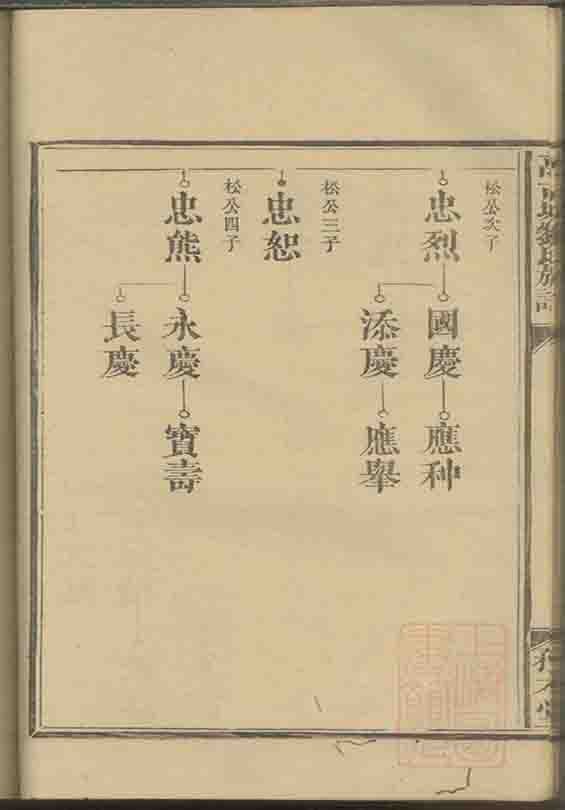 劉氏族譜
松公次子
忠烈
國慶
應种
添慶
應舉
松公三子
忠恕
松公四子
忠熊
永慶
寶壽
長慶